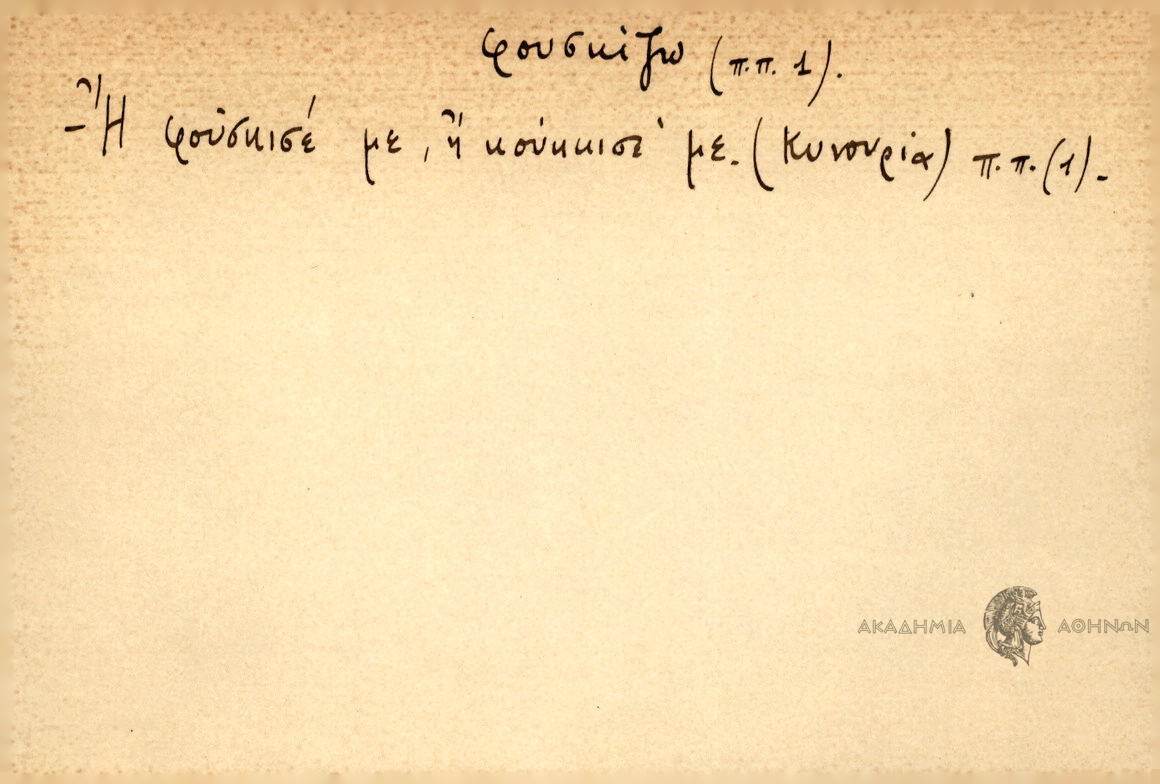 φουσκίζω (π.π. 1).
- Ἢ φούσκισέ με, ἢ κούκκισέ με. (Κυνουρία) π.π. (1).-
ΑΚΑΔΗΜΙΑ ΑΘΗΝΩΝ